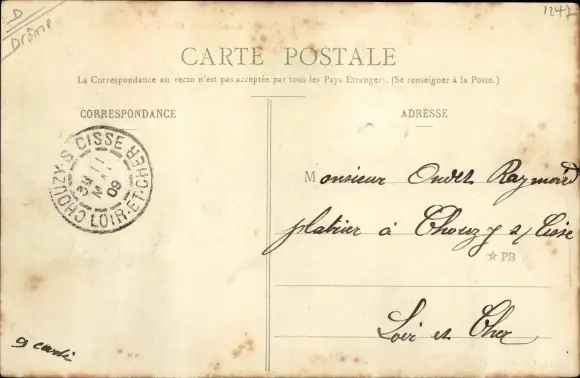 D
Drôme
1247
CARTE POSTALE
La Correspondance au recto n'est pas acceptée par tous les Pays Étrangers. (Se renseigner à la Poste.)
CORRESPONDANCE
ADRESSE
CHOUZY-S-CISSE
LOIR-ET-CHER
11
MAI
09
Monsieur Oudet Raymond
platrier à Chouzy s/ Cisse
☆ PB
Loir et Cher